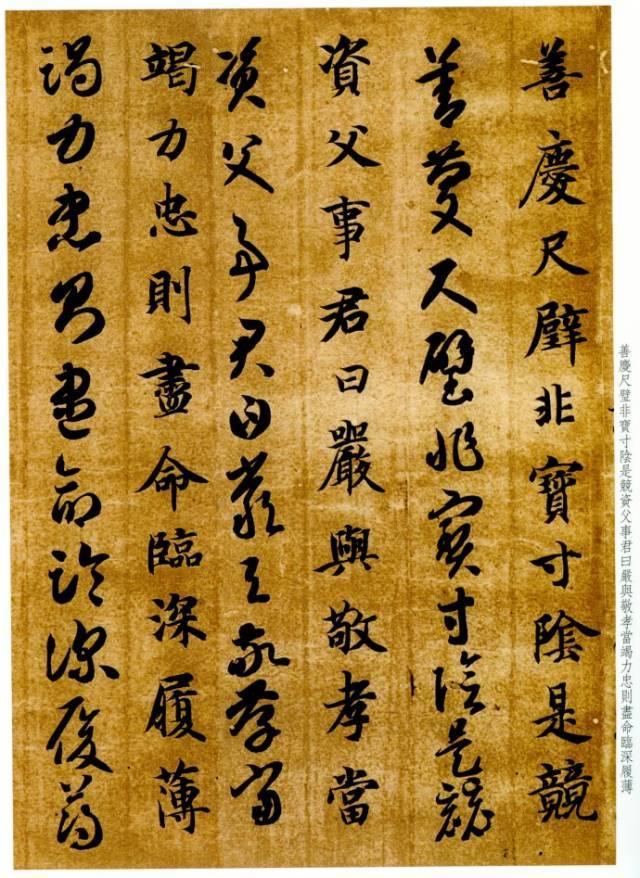 善慶尺璧非寶寸陰是競資父事君曰嚴與敬孝當竭力忠則盡命臨深履薄
善慶尺璧非寶寸陰是競
善慶尺璧非寶寸陰是競
資父事君曰嚴與敬孝當
資父事君曰嚴與敬孝當
竭力忠則盡命臨深履薄
竭力忠則盡命臨深履薄